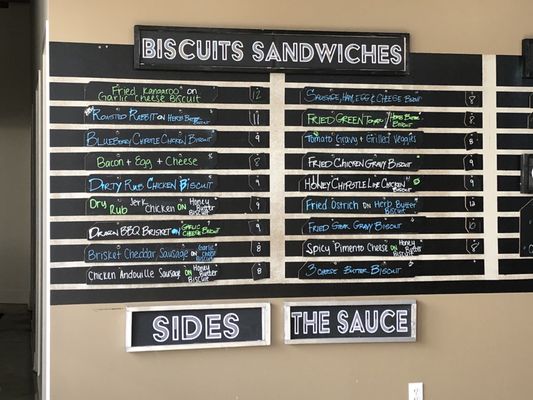 BISCUITS SANDWICHES
Fried Kangaroo on
Garlic Cheese Biscuit 12
Roasted Rabbit on Herb Biscuit 11
Blueberry Chipotle Chicken Biscuit 9
Bacon + Egg + Cheese 8
Dirty Rub Chicken Biscuit 9
Dry Rub Jerk Chicken on Honey Butter Biscuit 9
Dragon BBQ Brisket on Garlic Cheese Biscuit 9
Brisket Cheddar Sausage on Garlic Cheese Biscuit 8
Chicken Andouille Sausage on Honey Butter Biscuit 8
Sausage, Ham, Egg & Cheese Biscuit 8
Fried Green Tomato / Herb Biscuit 8
Tomato Gravy + Grilled Veggies 8
Fried Chicken Gravy Biscuit 9
Honey Chipotle Lime Chicken 9
Fried Ostrich on Herb Butter Biscuit
Fried Steak Gravy Biscuit 10
Spicy Pimento Cheese on Honey Butter Biscuit
3 Cheese Butter Biscuit
SIDES
THE SAUCE